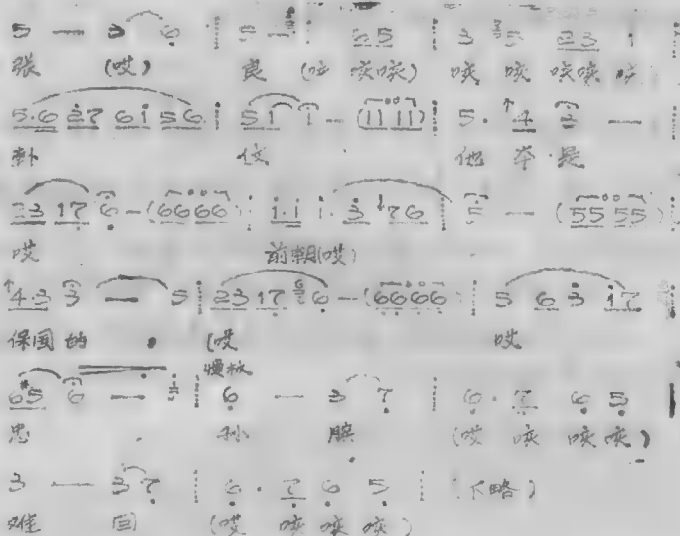 5 — 3 6 ┊ 5 — ┊ 65 ┊ 3 5 23 1 ┊
张 (哎) 良 (咳 咳咳) 咳 咳 咳咳 咳
5·6 27 61 56 ┊ 51 1 — (11 11) ┊ 5· ↑4 3 — ┊
卦 仗 他 本 是
23 17 6 — (66 66) ┊ 1·1 1· 3 ↓76 ┊ 5 — (55 55) ┊
哎 前朝(哎)
↑4·3 3 — 5 ┊ 23 17 6 — (66 66) ┊ 5 6 3 17 ┊
保国的 (哎 哎
慢板
65 6 — ┊ 6 — 3 7 ┊ 6· 7 6 5
忠 孙 膑 (哎 咳 咳 咳)
3 — 3 7 ┊ 6· 7 6 5 ┊ (下略)
难 回 (哎 咳 咳 咳)